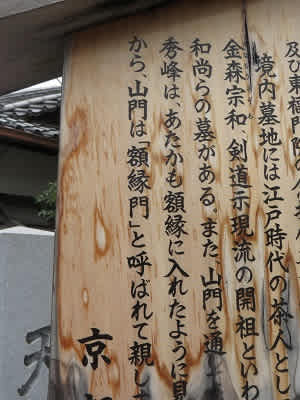 及び東福門院の
境内墓地には江戸時代の茶人とし
金森宗和、剣道示現流の開祖といわ
和尚らの墓がある。また、山門を通
秀峰は、あたかも額縁に入れたように見
から、山門は「額縁門」と呼ばれて親し
京
天